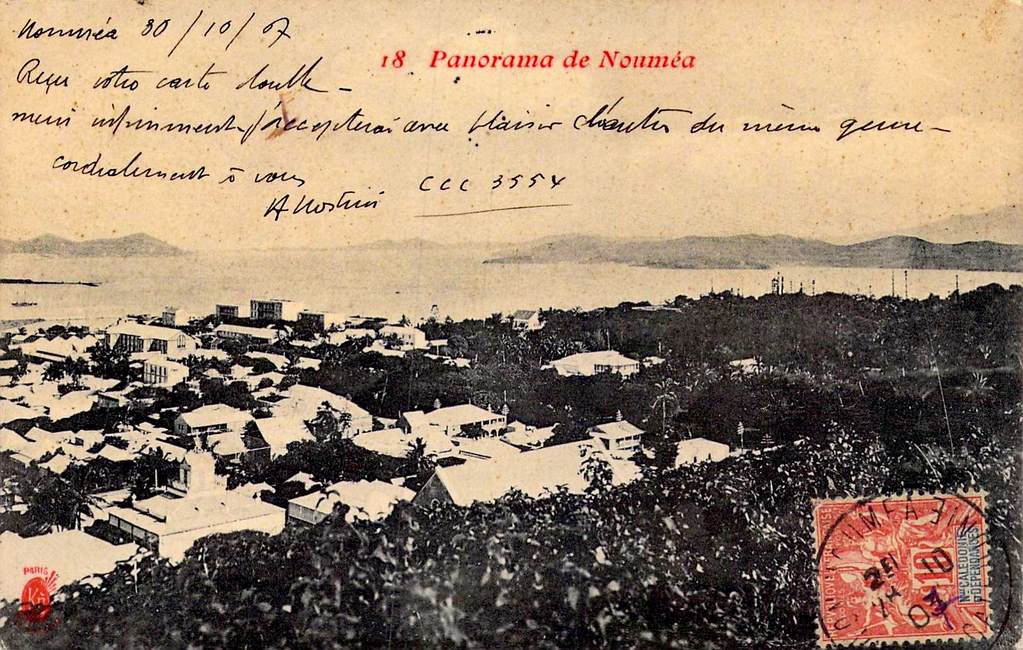 Nouméa 30/10/07
18 Panorama de Nouméa
Reçu votre carte double –
merci infiniment, j'accepterai avec plaisir d'autres du même genre –
cordialement à vous
CCC 3554
PARIS
10
Nlle CALÉDONIE
ET DÉPENDANCES